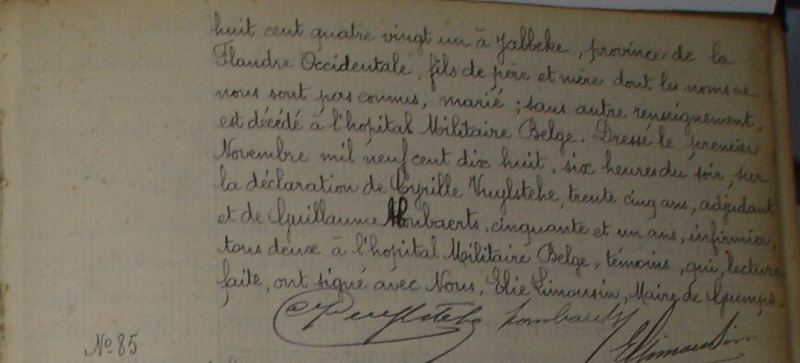 huit cent quatre vingt un à Jabbeke, province de la
Flandre Occidentale, fils de père et mère dont les noms ne
nous sont pas connus, marié ; sans autre renseignement,
est décédé à l'hopital Militaire Belge. Dressé le premier
Novembre mil neuf cent dix huit, six heures du soir, sur
la déclaration de Cyrille Vuylsteke, trente cinq ans, adjudant
et de Guillaume Lombaerts, cinquante et un ans, infirmier,
tous deux à l'hopital Militaire Belge, témoins, qui, lecture
faite, ont signé avec Nous, Elie Limousin, Maire de Guemps.
Vuylsteke Lombaerts
ELimousin
N° 85